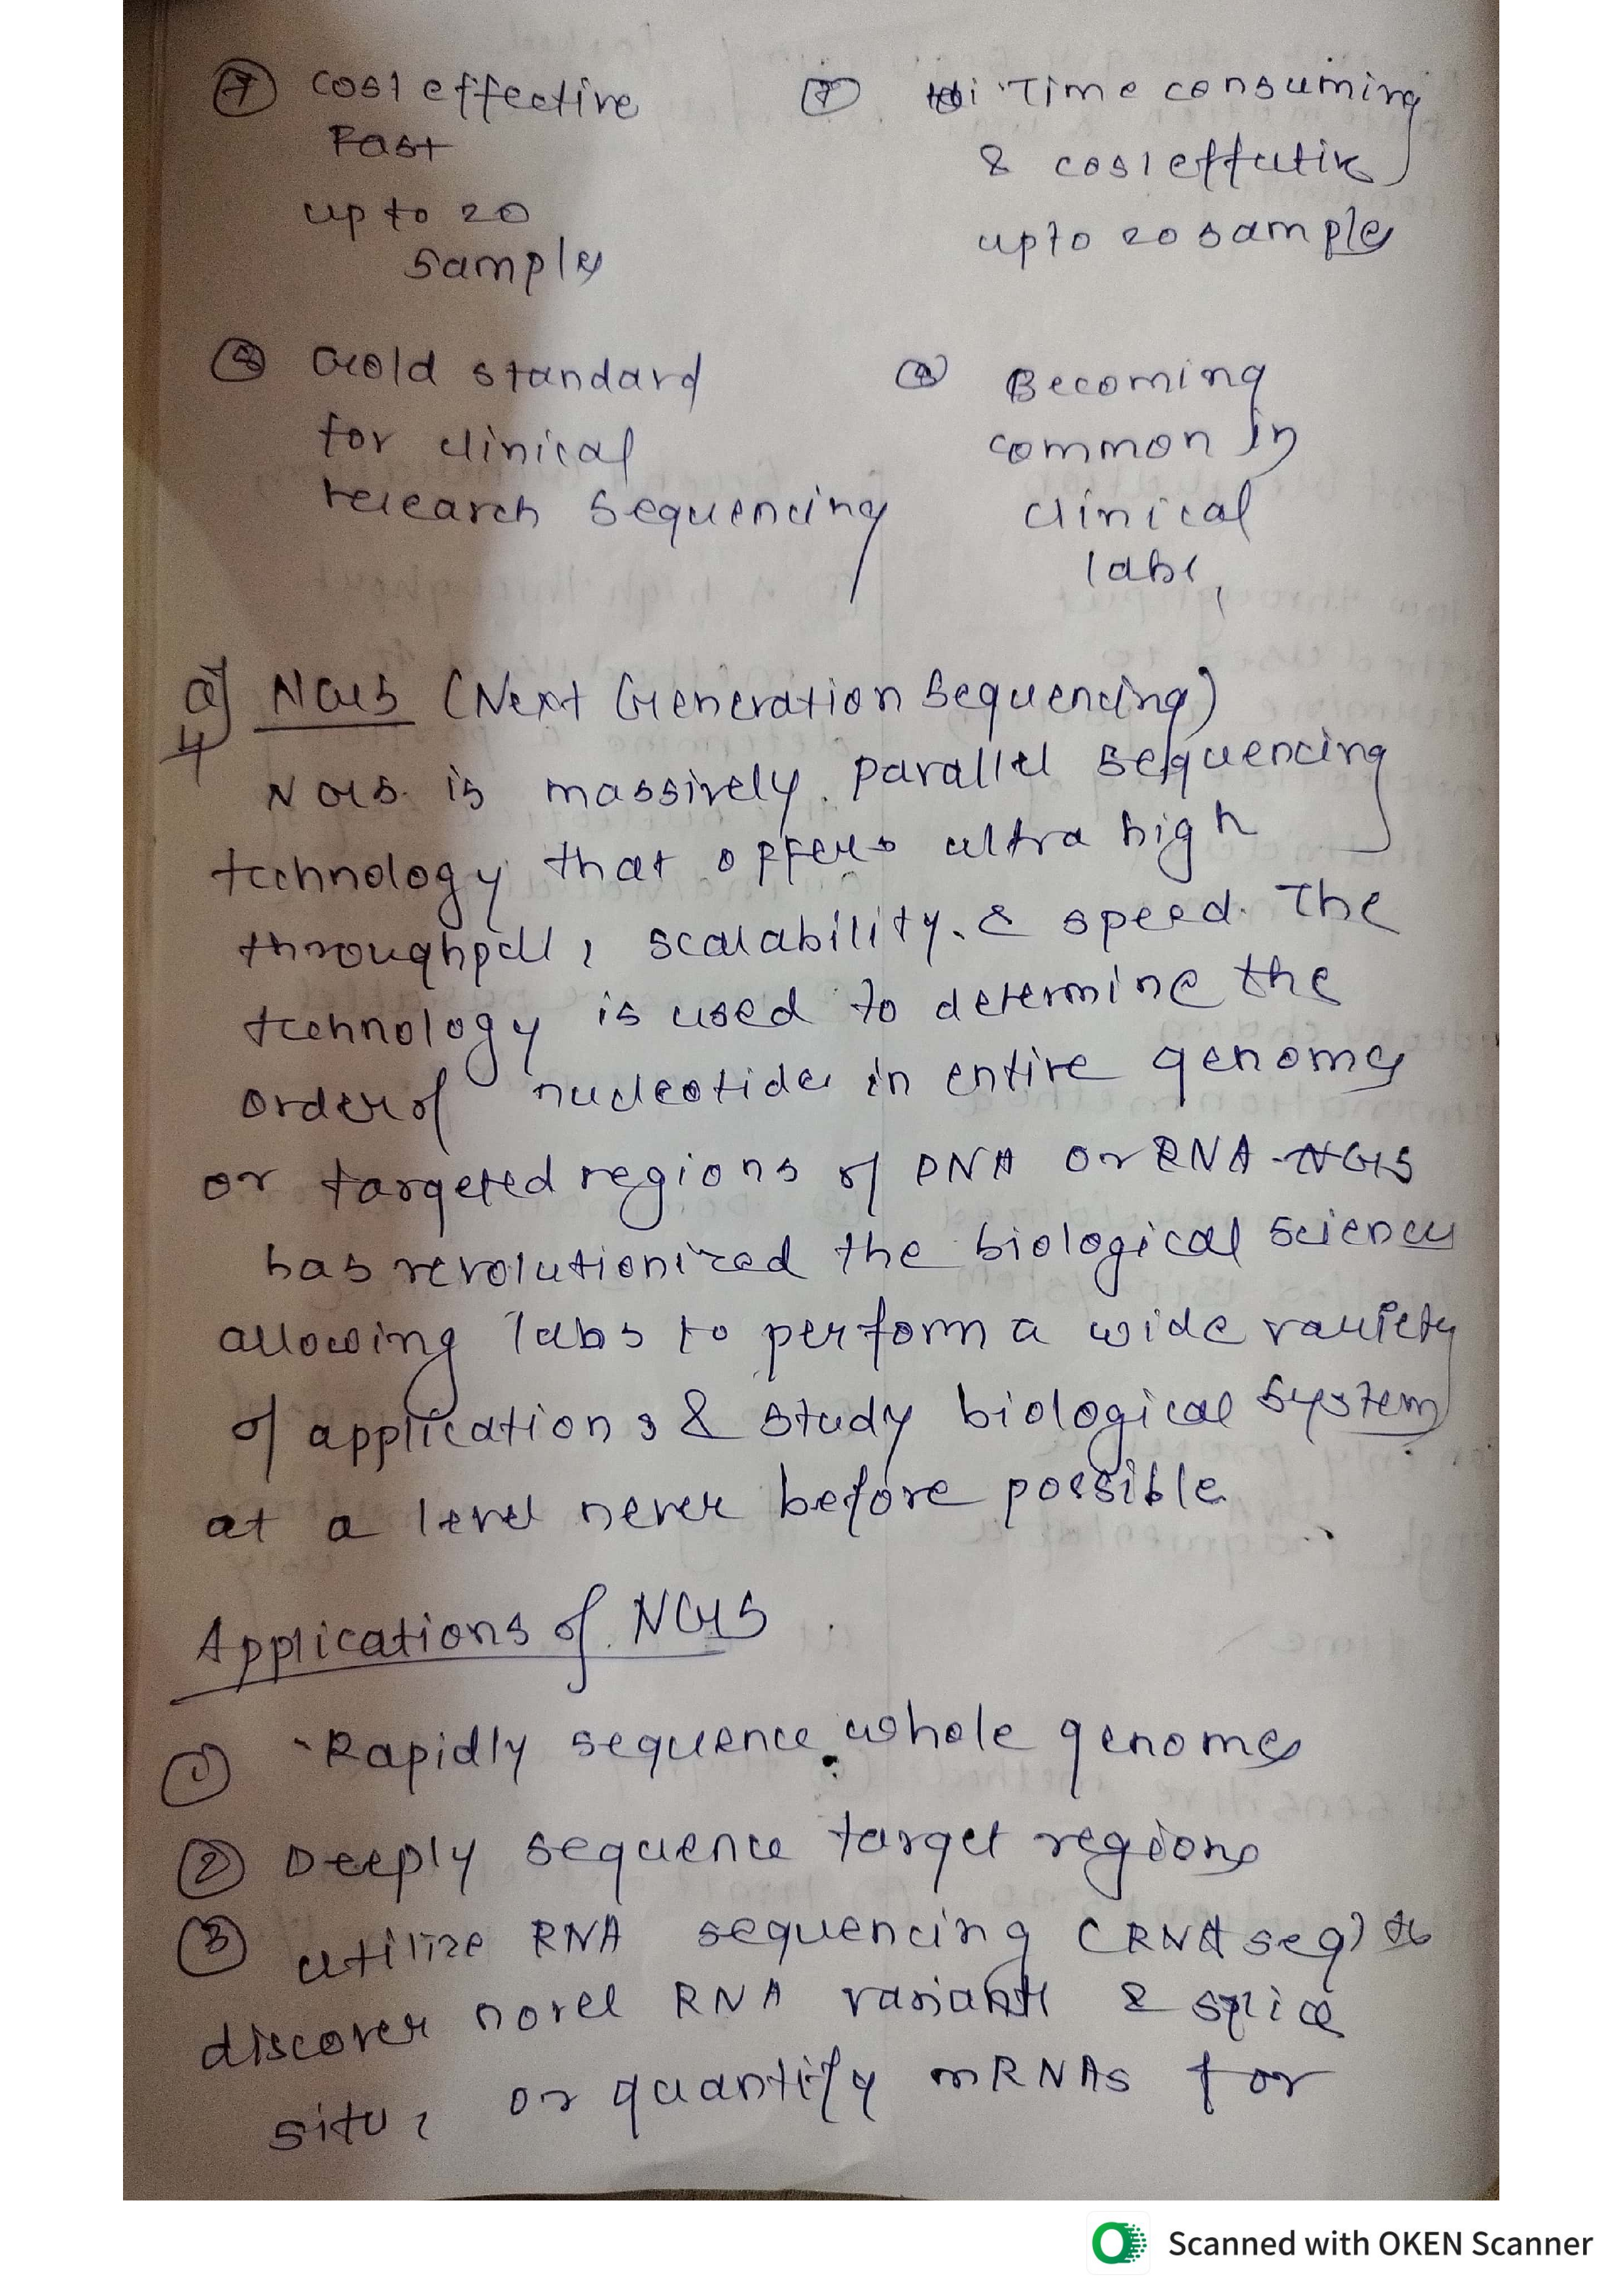 ⑦ cost effective
Fast
up to 20
samples
⑦ Time consuming
& cost effective
upto 20 samples
⑧ Gold standard
for clinical
research sequencing
⑧ Becoming
common in
clinical
labs,
a) NGS (Next Generation Sequencing)
4
NGS is massively parallel sequencing
technology that offers ultra high
throughput, scalability & speed. The
technology is used to determine the
order of nucleotides in entire genomes
or targeted regions of DNA or RNA NGS
has revolutionized the biological sciences
allowing labs to perform a wide variety
of applications & study biological systems
at a level never before possible.
Applications of NGS
① Rapidly sequence whole genomes
② Deeply sequence target regions
③ utilize RNA sequencing (RNA seq) to
discover novel RNA variants & splice
sites, or quantify mRNAs for
Scanned with OKEN Scanner